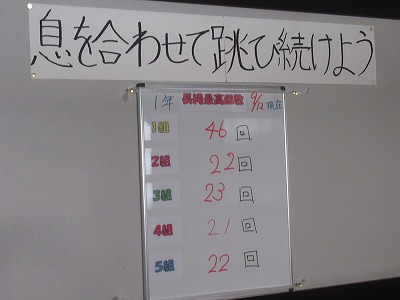 息を合わせて跳び続けよう
1年 長縄最高回数 9/12現在
1組 46回
2組 22回
3組 23回
4組 21回
5組 22回